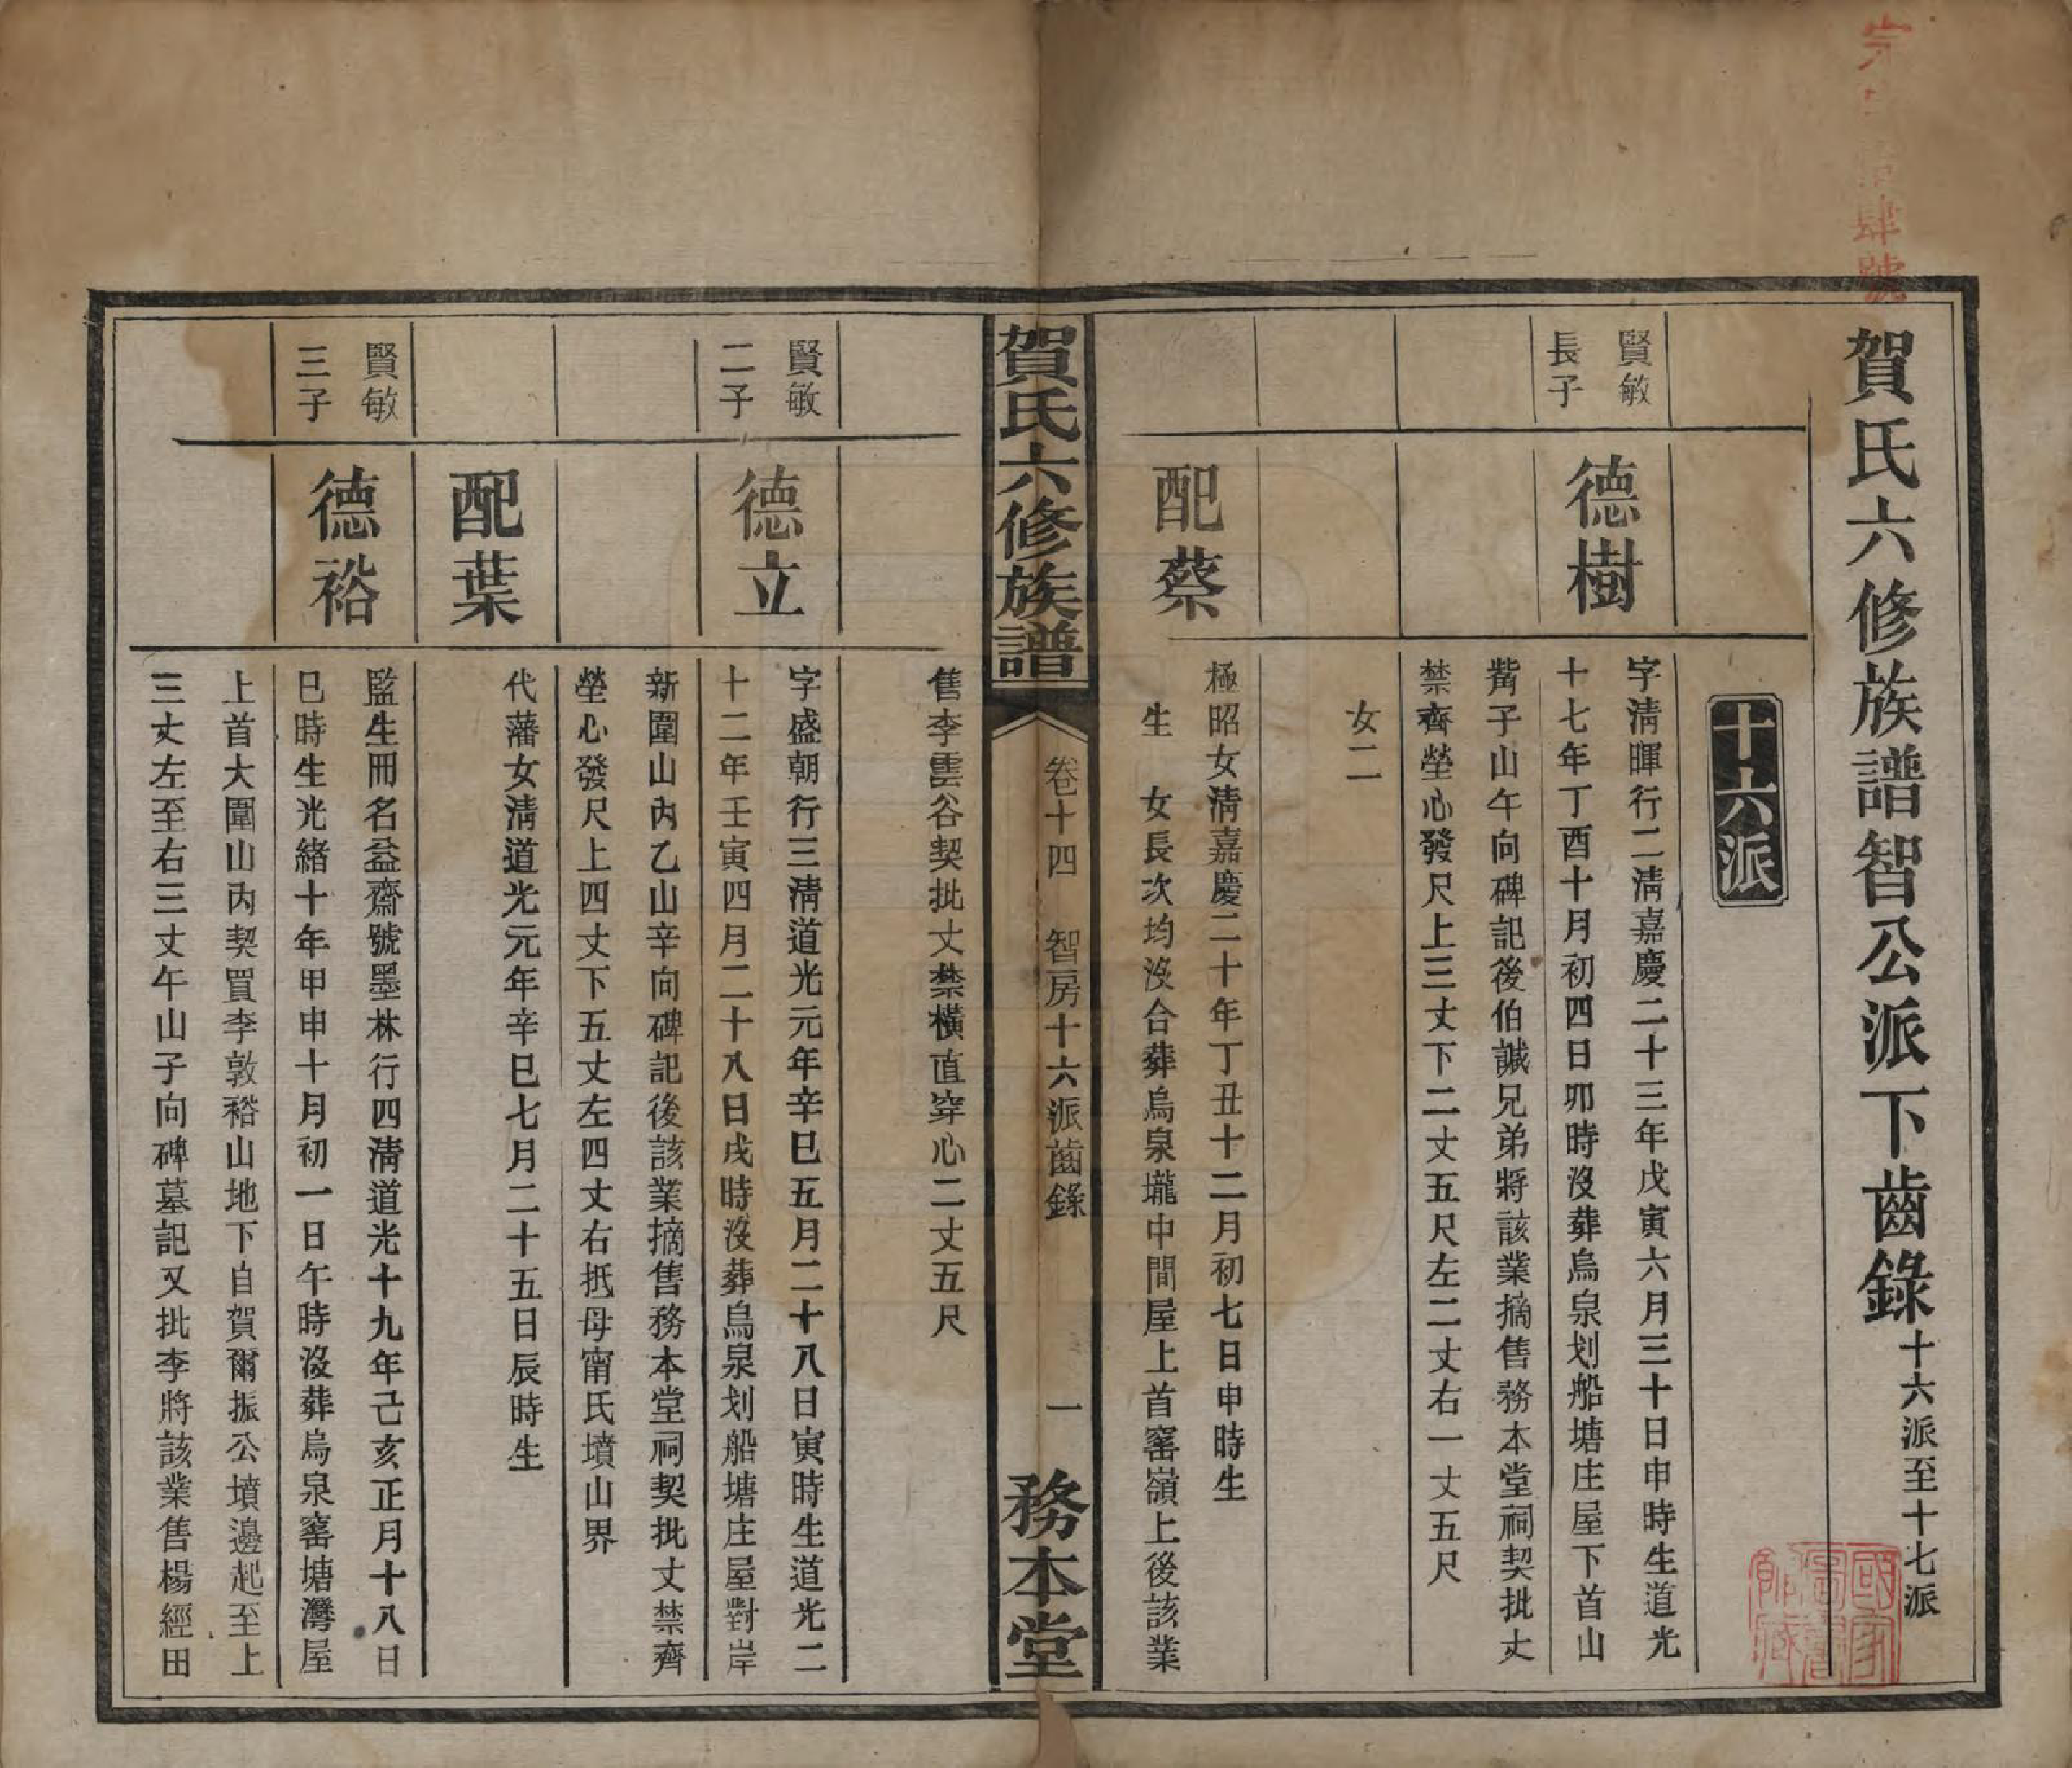 賀氏六修族譜智公派下齒錄十六派至十七派
十六派
賢敏
長子
德樹
字清暉行二清嘉慶二十三年戊寅六月三十日申時生道光
十七年丁酉十月初四日卯時沒葬烏泉划船塘庄屋下首山
觜子山午向碑記後伯誠兄弟將該業摘售務本堂祠契批丈
禁齊塋心發尺上三丈下二丈五尺左二丈右一丈五尺
女二
配蔡
極昭女清嘉慶二十年丁丑十二月初七日申時生
生 女長次均沒合葬烏泉壠中間屋上首窰嶺上後該業
賀氏六修族譜
卷十四 智房十六派齒錄
一
務本堂
售李雲谷契批丈禁橫直穿心二丈五尺
賢敏
二子
德立
字盛朝行三清道光元年辛巳五月二十八日寅時生道光二
十二年壬寅四月二十八日戌時沒葬烏泉划船塘庄屋對岸
新圍山內乙山辛向碑記後該業摘售務本堂祠契批丈禁齊
塋心發尺上四丈下五丈左四丈右抵母甯氏墳山界
配葉
代藩女清道光元年辛巳七月二十五日辰時生
賢敏
三子
德裕
監生冊名益齋號墨林行四清道光十九年己亥正月十八日
巳時生光緒十年甲申十月初一日午時沒葬烏泉窰塘灣屋
上首大圍山內契買李敦裕山地下自賀爾振公墳邊起至上
三丈左至右三丈午山子向碑墓記又批李將該業售楊經田
肆號